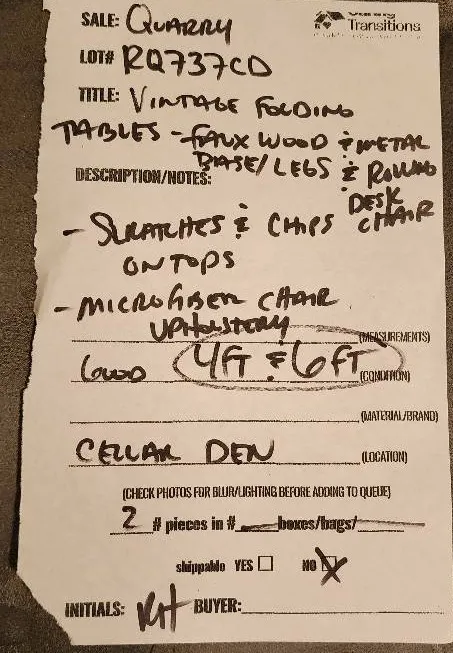 SALE: QUARRY
Transitions
LOT# RQ737CD
TITLE: VINTAGE FOLDING
TABLES - FAUX WOOD & METAL
BASE/LEGS & ROLLING
DESK
CHAIR
DESCRIPTION/NOTES:
- SCRATCHES & CHIPS
ON TOPS
- MICROFIBER CHAIR
UPHOLSTERY
(MEASUREMENTS)
GOOD 4FT & 6FT
(CONDITION)
(MATERIAL/BRAND)
CELLAR DEN (LOCATION)
(CHECK PHOTOS FOR BLUR/LIGHTING BEFORE ADDING TO QUEUE)
2 # pieces in # boxes/bags/
shippable YES ☐ NO ☒
INITIALS: RH BUYER: